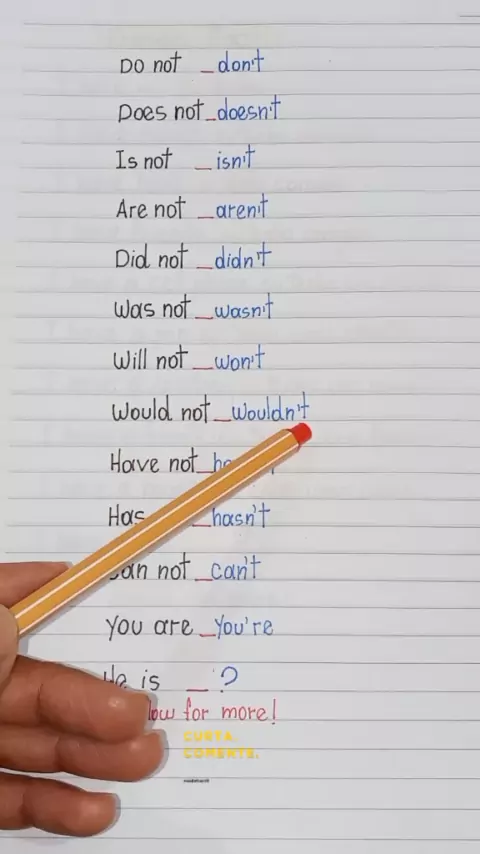 Do not _don't
Does not_doesn't
Is not _isn't
Are not _aren't
Did not _didn't
Was not _wasn't
Will not _won't
Would not_wouldn't
Have not
Has _hasn't
not _can't
You are _You're
is _?
for more!
CURTA.
COMENTE.